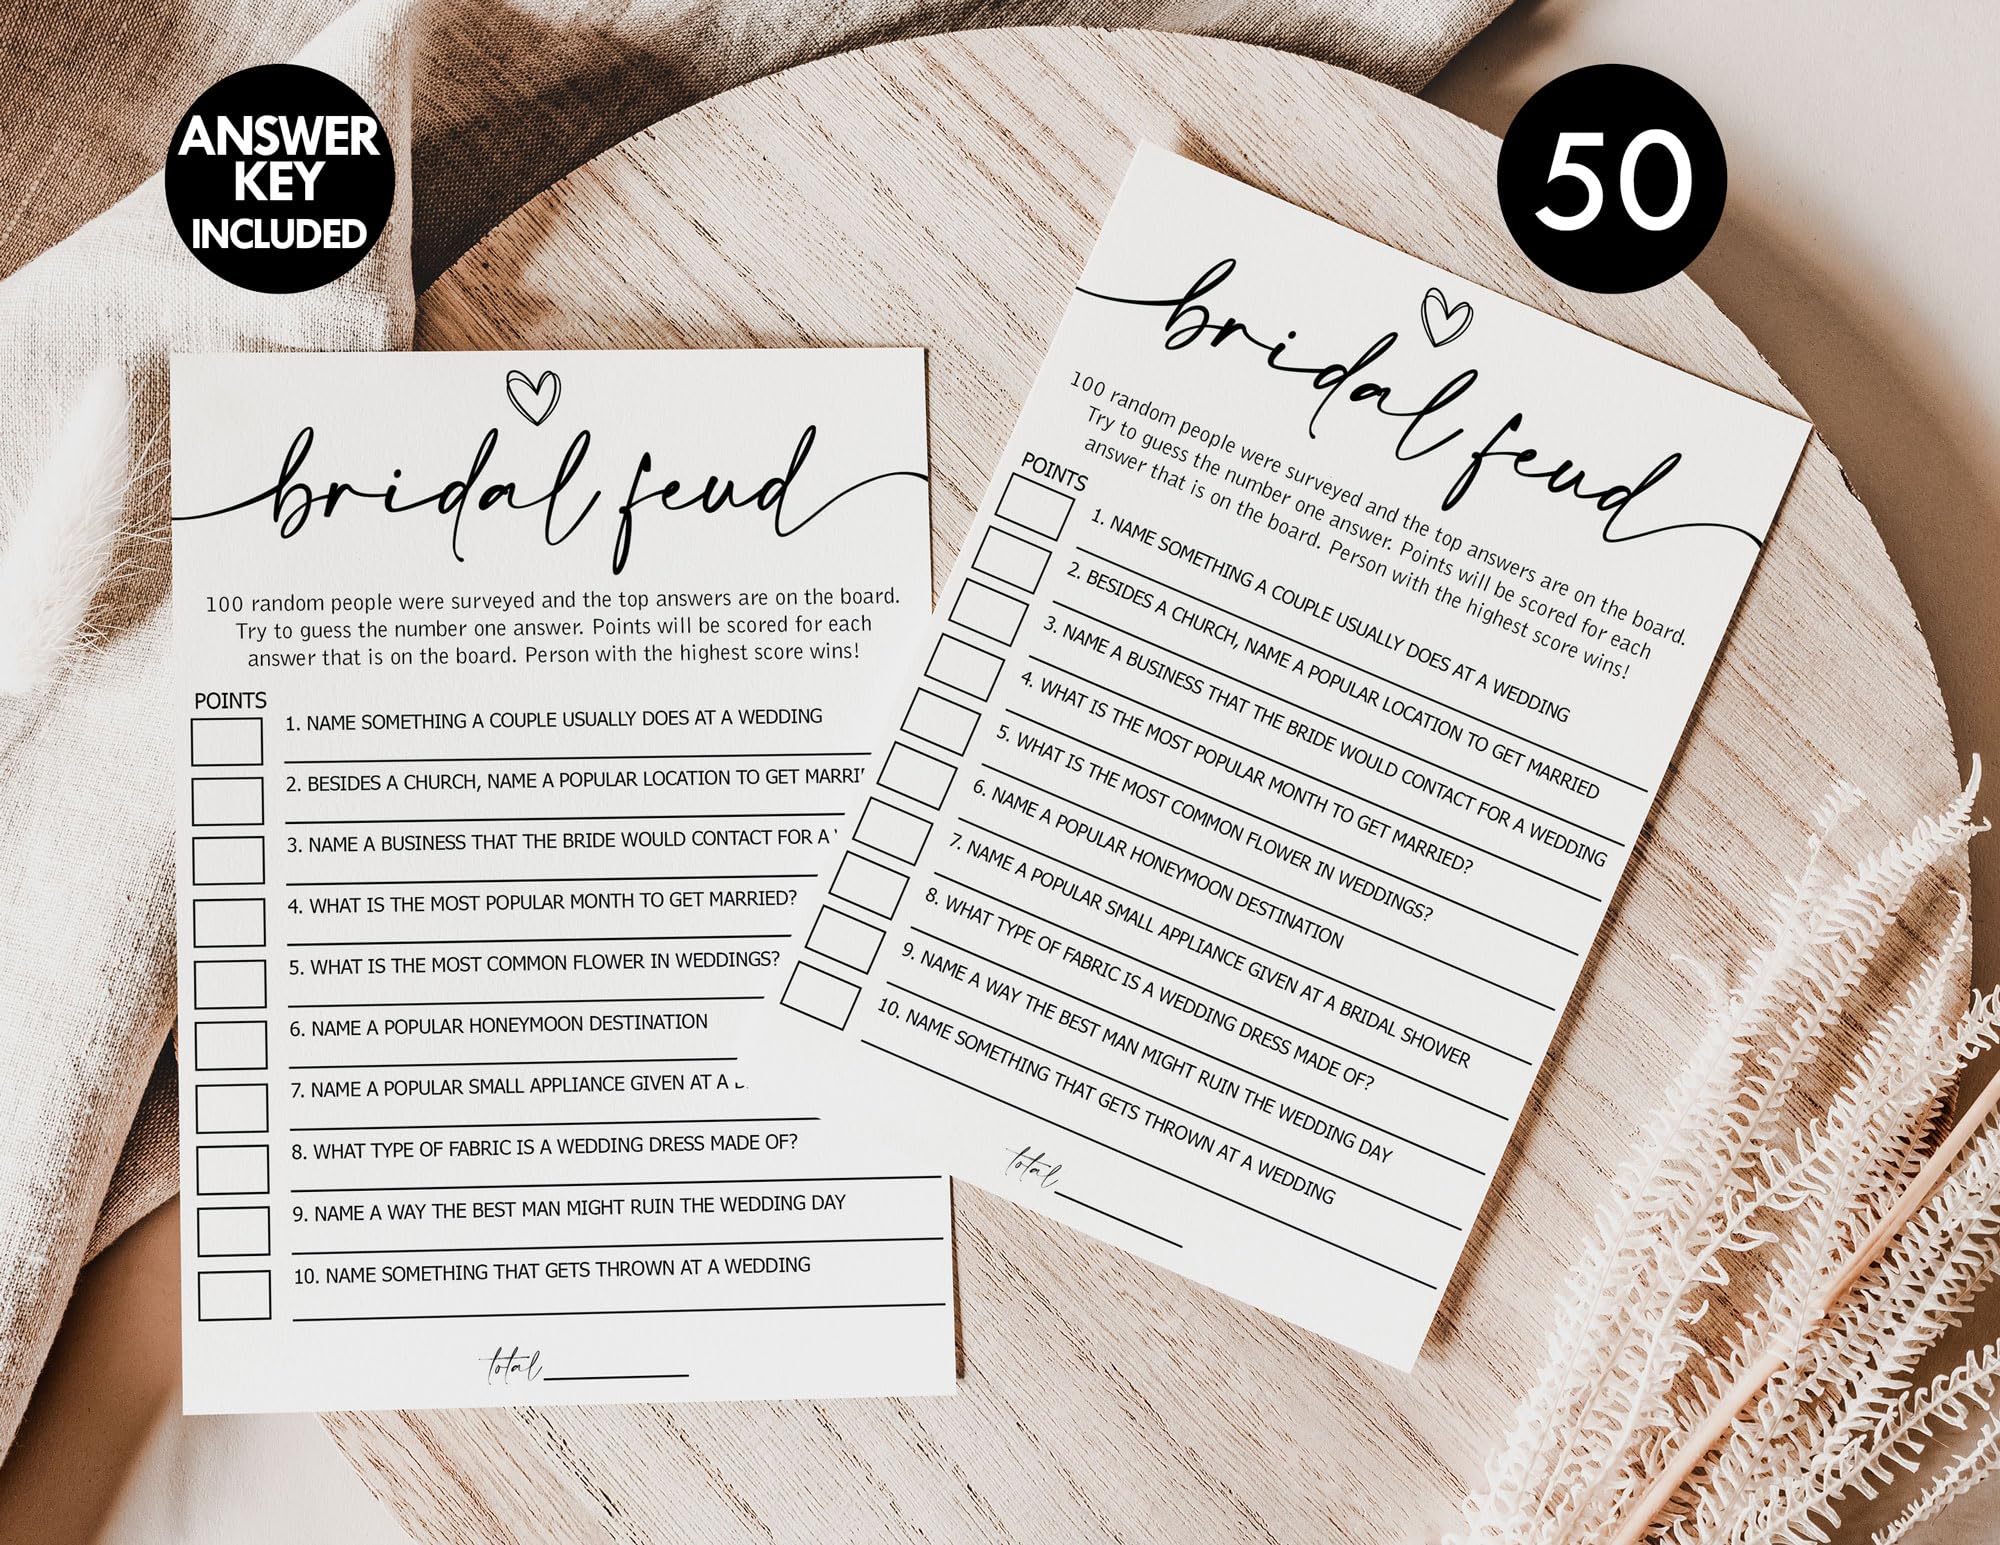 ANSWER
KEY
INCLUDED
50
bridal feud
100 random people were surveyed and the top answers are on the board.
Try to guess the number one answer. Points will be scored for each
answer that is on the board. Person with the highest score wins!
POINTS
1. NAME SOMETHING A COUPLE USUALLY DOES AT A WEDDING
2. BESIDES A CHURCH, NAME A POPULAR LOCATION TO GET
3. NAME A BUSINESS THAT THE BRIDE WOULD CONTACT FOR A
4. WHAT IS THE MOST POPULAR MONTH TO GET MARRIED?
5. WHAT IS THE MOST COMMON FLOWER IN WEDDINGS?
6. NAME A POPULAR HONEYMOON DESTINATION
7. NAME A POPULAR SMALL APPLIANCE GIVEN AT A
8. WHAT TYPE OF FABRIC IS A WEDDING DRESS MADE OF?
9. NAME A WAY THE BEST MAN MIGHT RUIN THE WEDDING DAY
10. NAME SOMETHING THAT GETS THROWN AT A WEDDING
total
bridal feud
100 random people were surveyed and the top answers are on the board.
Try to guess the number one answer. Points will be scored for each
answer that is on the board. Person with the highest score wins!
POINTS
1. NAME SOMETHING A COUPLE USUALLY DOES AT A WEDDING
2. BESIDES A CHURCH, NAME A POPULAR LOCATION TO GET MARRIED
3. NAME A BUSINESS THAT THE BRIDE WOULD CONTACT FOR A WEDDING
4. WHAT IS THE MOST POPULAR MONTH TO GET MARRIED?
5. WHAT IS THE MOST COMMON FLOWER IN WEDDINGS?
6. NAME A POPULAR HONEYMOON DESTINATION
7. NAME A POPULAR SMALL APPLIANCE GIVEN AT A BRIDAL SHOWER
8. WHAT TYPE OF FABRIC IS A WEDDING DRESS MADE OF?
9. NAME A WAY THE BEST MAN MIGHT RUIN THE WEDDING DAY
10. NAME SOMETHING THAT GETS THROWN AT A WEDDING
total